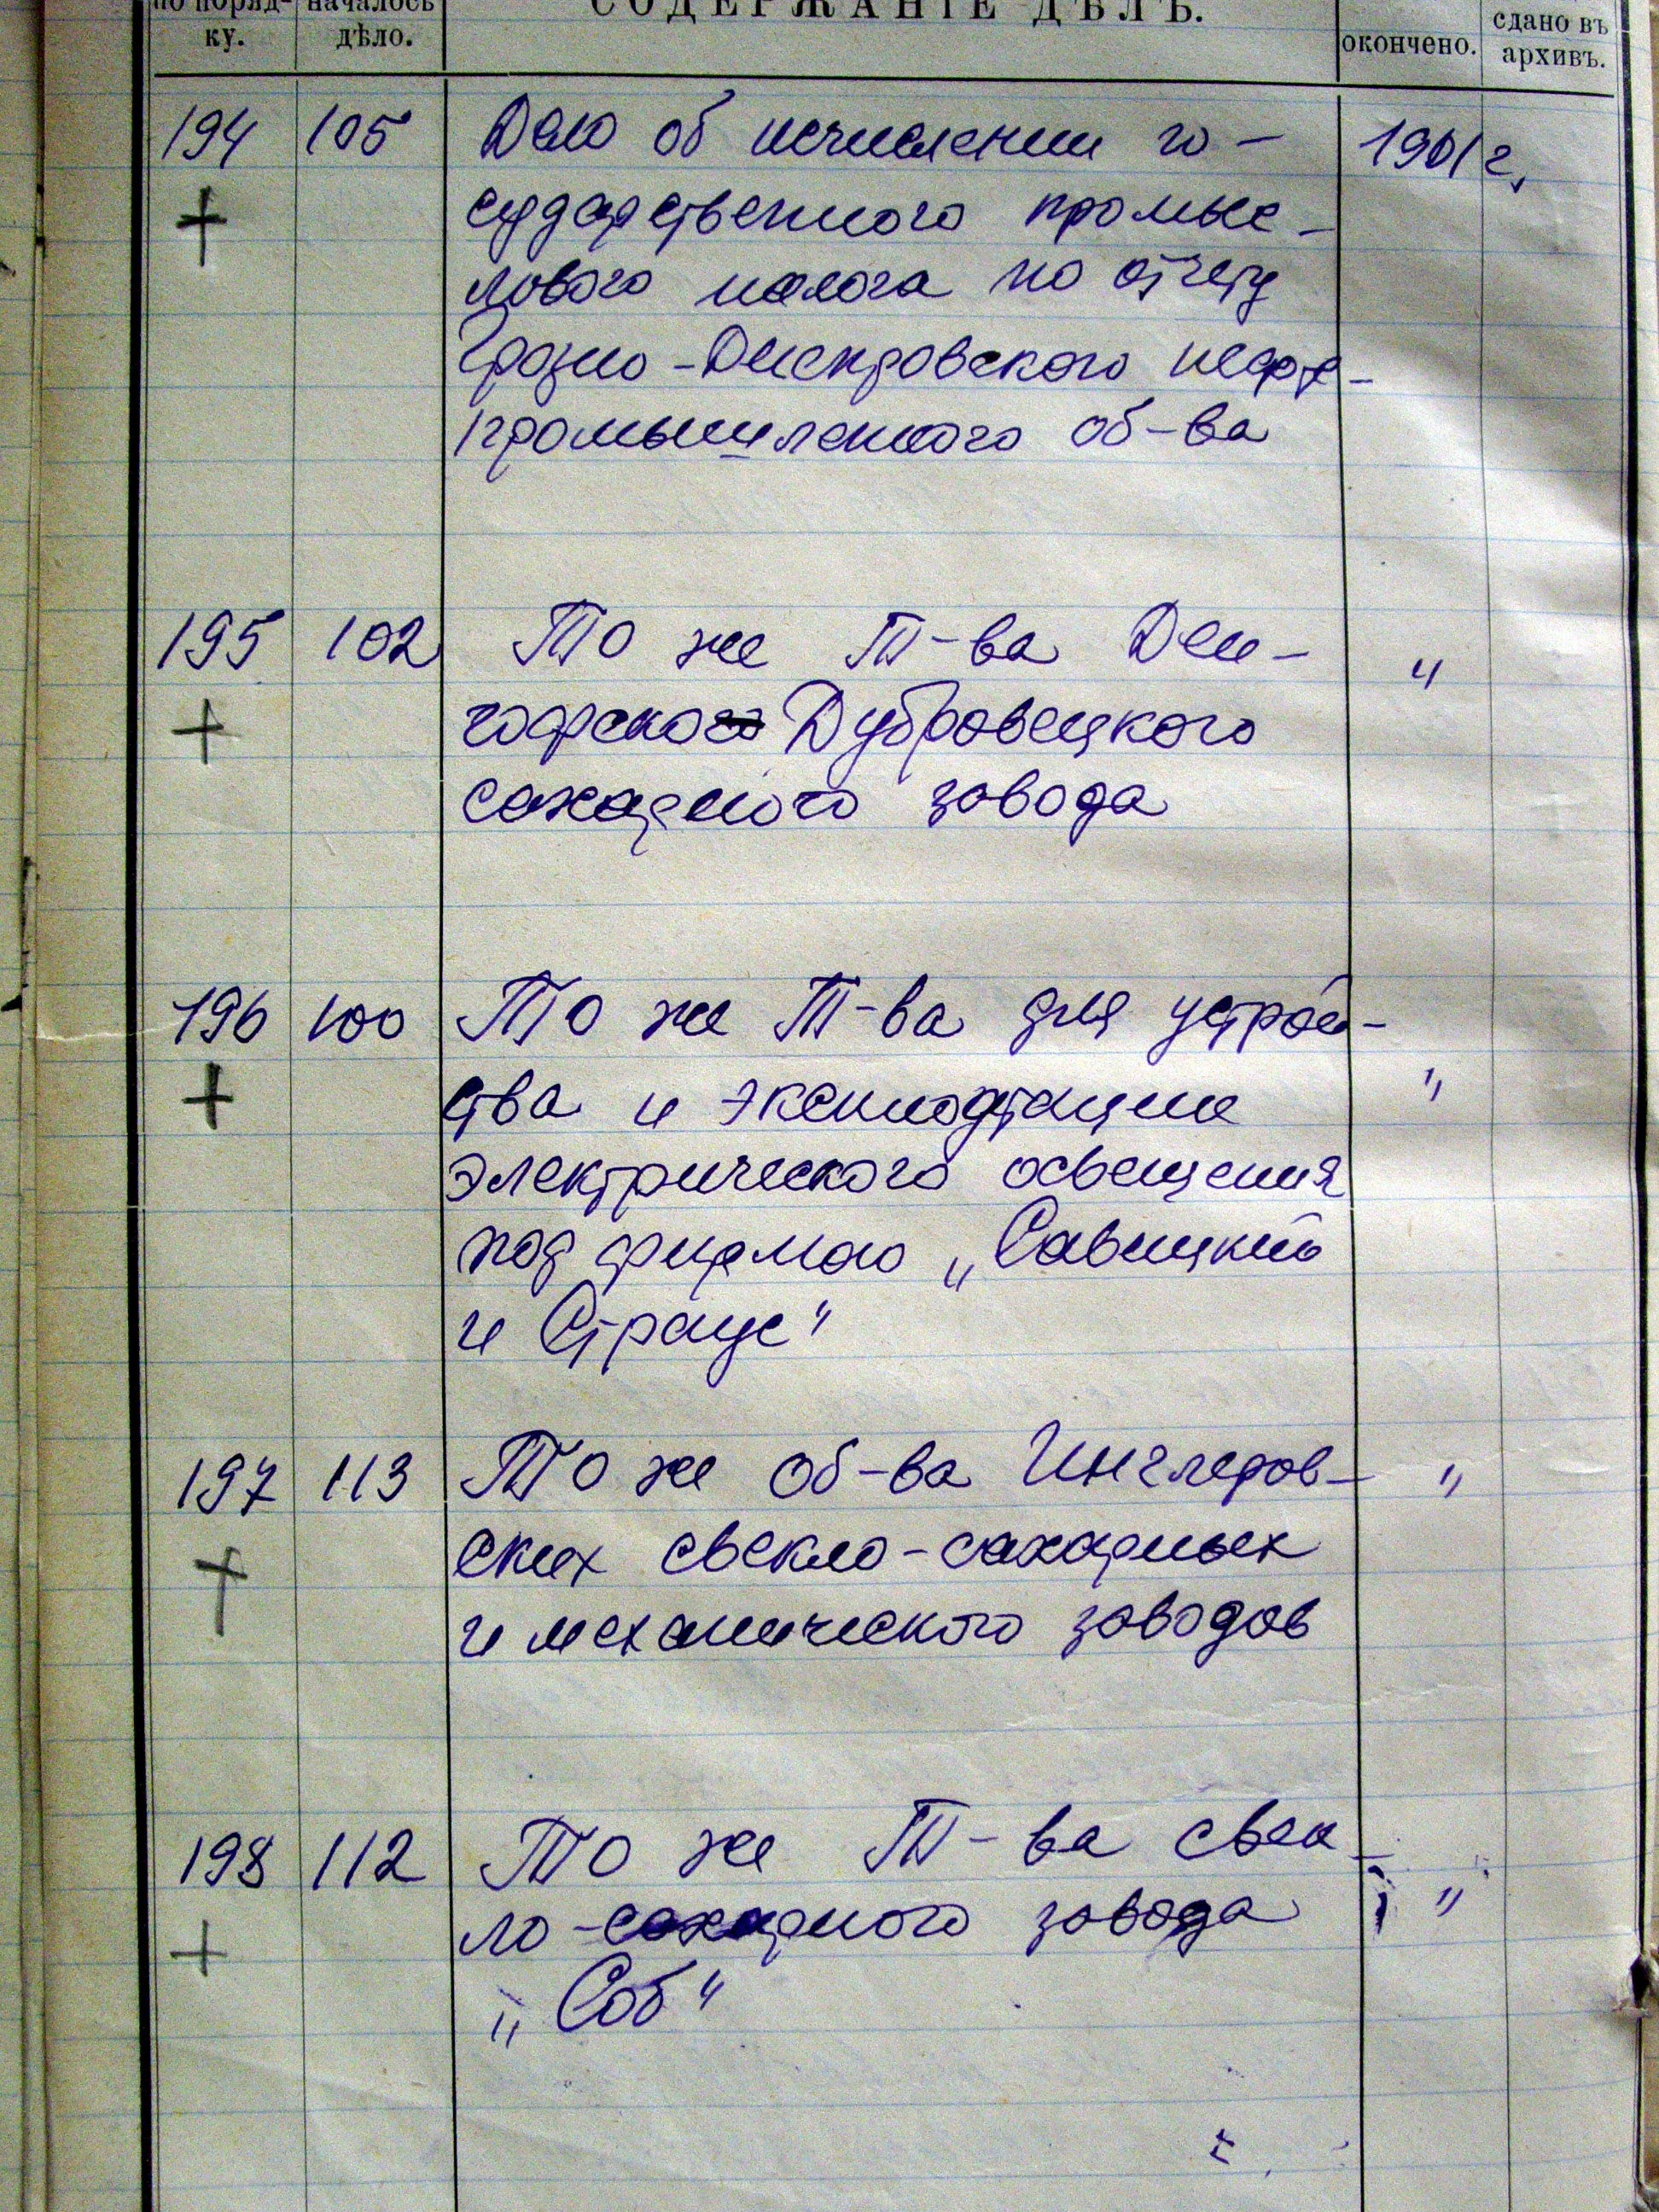 по поряд- началось СОДЕРЖАНІЕ ДѢЛЪ. сдано въ
ку. дѣло. окончено. архивъ.
194 105 Дело об исчислении го- 1901 г.
сударственного промыс-
лового налога по отчету
Грозно-Днепровского нефте-
промышленного об-ва
195 102 То же Т-ва "
Дубровецкого
сахарного завода
196 100 То же Т-ва для устрой-
ства и эксплоатации "
электрического освещения
под фирмою „Савицкий
и Страус"
197 113 То же об-ва "
ских свекло-сахарных
и механического заводов
198 112 То же Т-ва свек-
ло-сахарного завода "
„Соб"